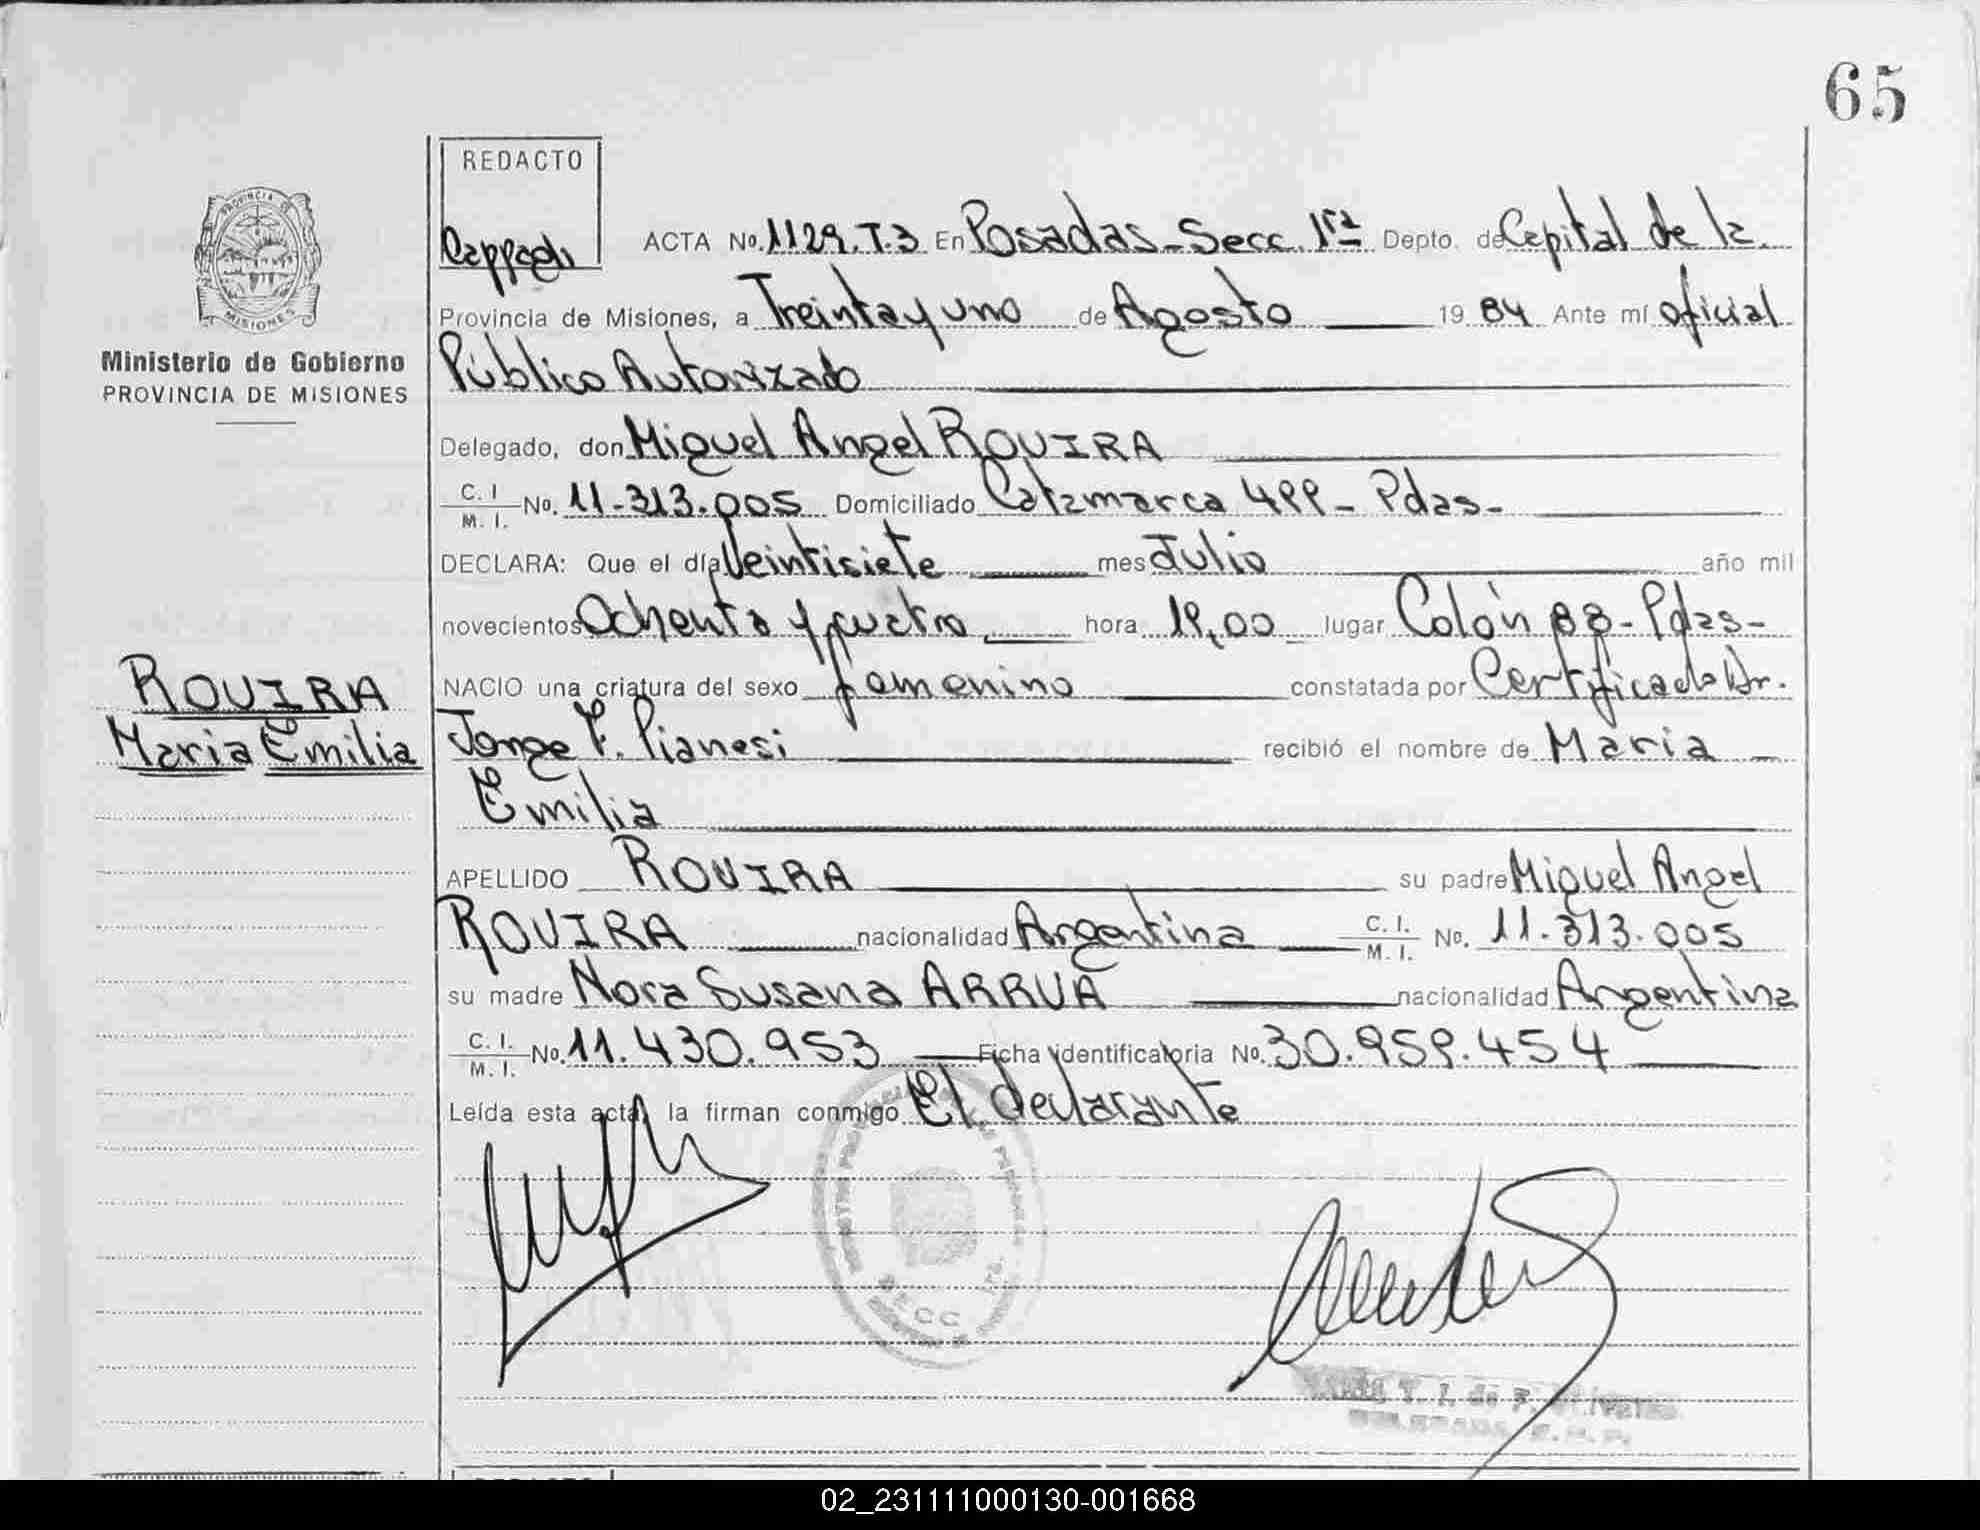 65
REDACTO
ACTA No. 1129.T.3 En Posadas - Secc. 1ra Depto. de Capital de la
Provincia de Misiones, a Treinta y uno de Agosto 19 84 Ante mí oficial
Ministerio de Gobierno
PROVINCIA DE MISIONES
Público Autorizado
Delegado, don Miguel Angel ROVIRA
C. I. M. I. No. 11-313.005 Domiciliado Catamarca 499 - Pdas-
DECLARA: Que el día Veintisiete mes Julio año mil
novecientos Ochenta y cuatro hora 19,00 lugar Colón - Pdas-
ROVIRA
NACIO una criatura del sexo femenino constatada por Certificado Dr.
Maria Emilia
Jorge F. Pianesi recibió el nombre de Maria
Emilia
APELLIDO ROVIRA su padre Miguel Angel
ROVIRA nacionalidad Argentina C. I. M. I. No. 11.313.005
su madre Nora Susana ARRUA nacionalidad Argentina
C. I. M. I. No. 11.430.953 Ficha identificatoria No. 30.959.454
Leída esta acta, la firman conmigo El declarante
SECC 1ra.
02_231111000130-001668